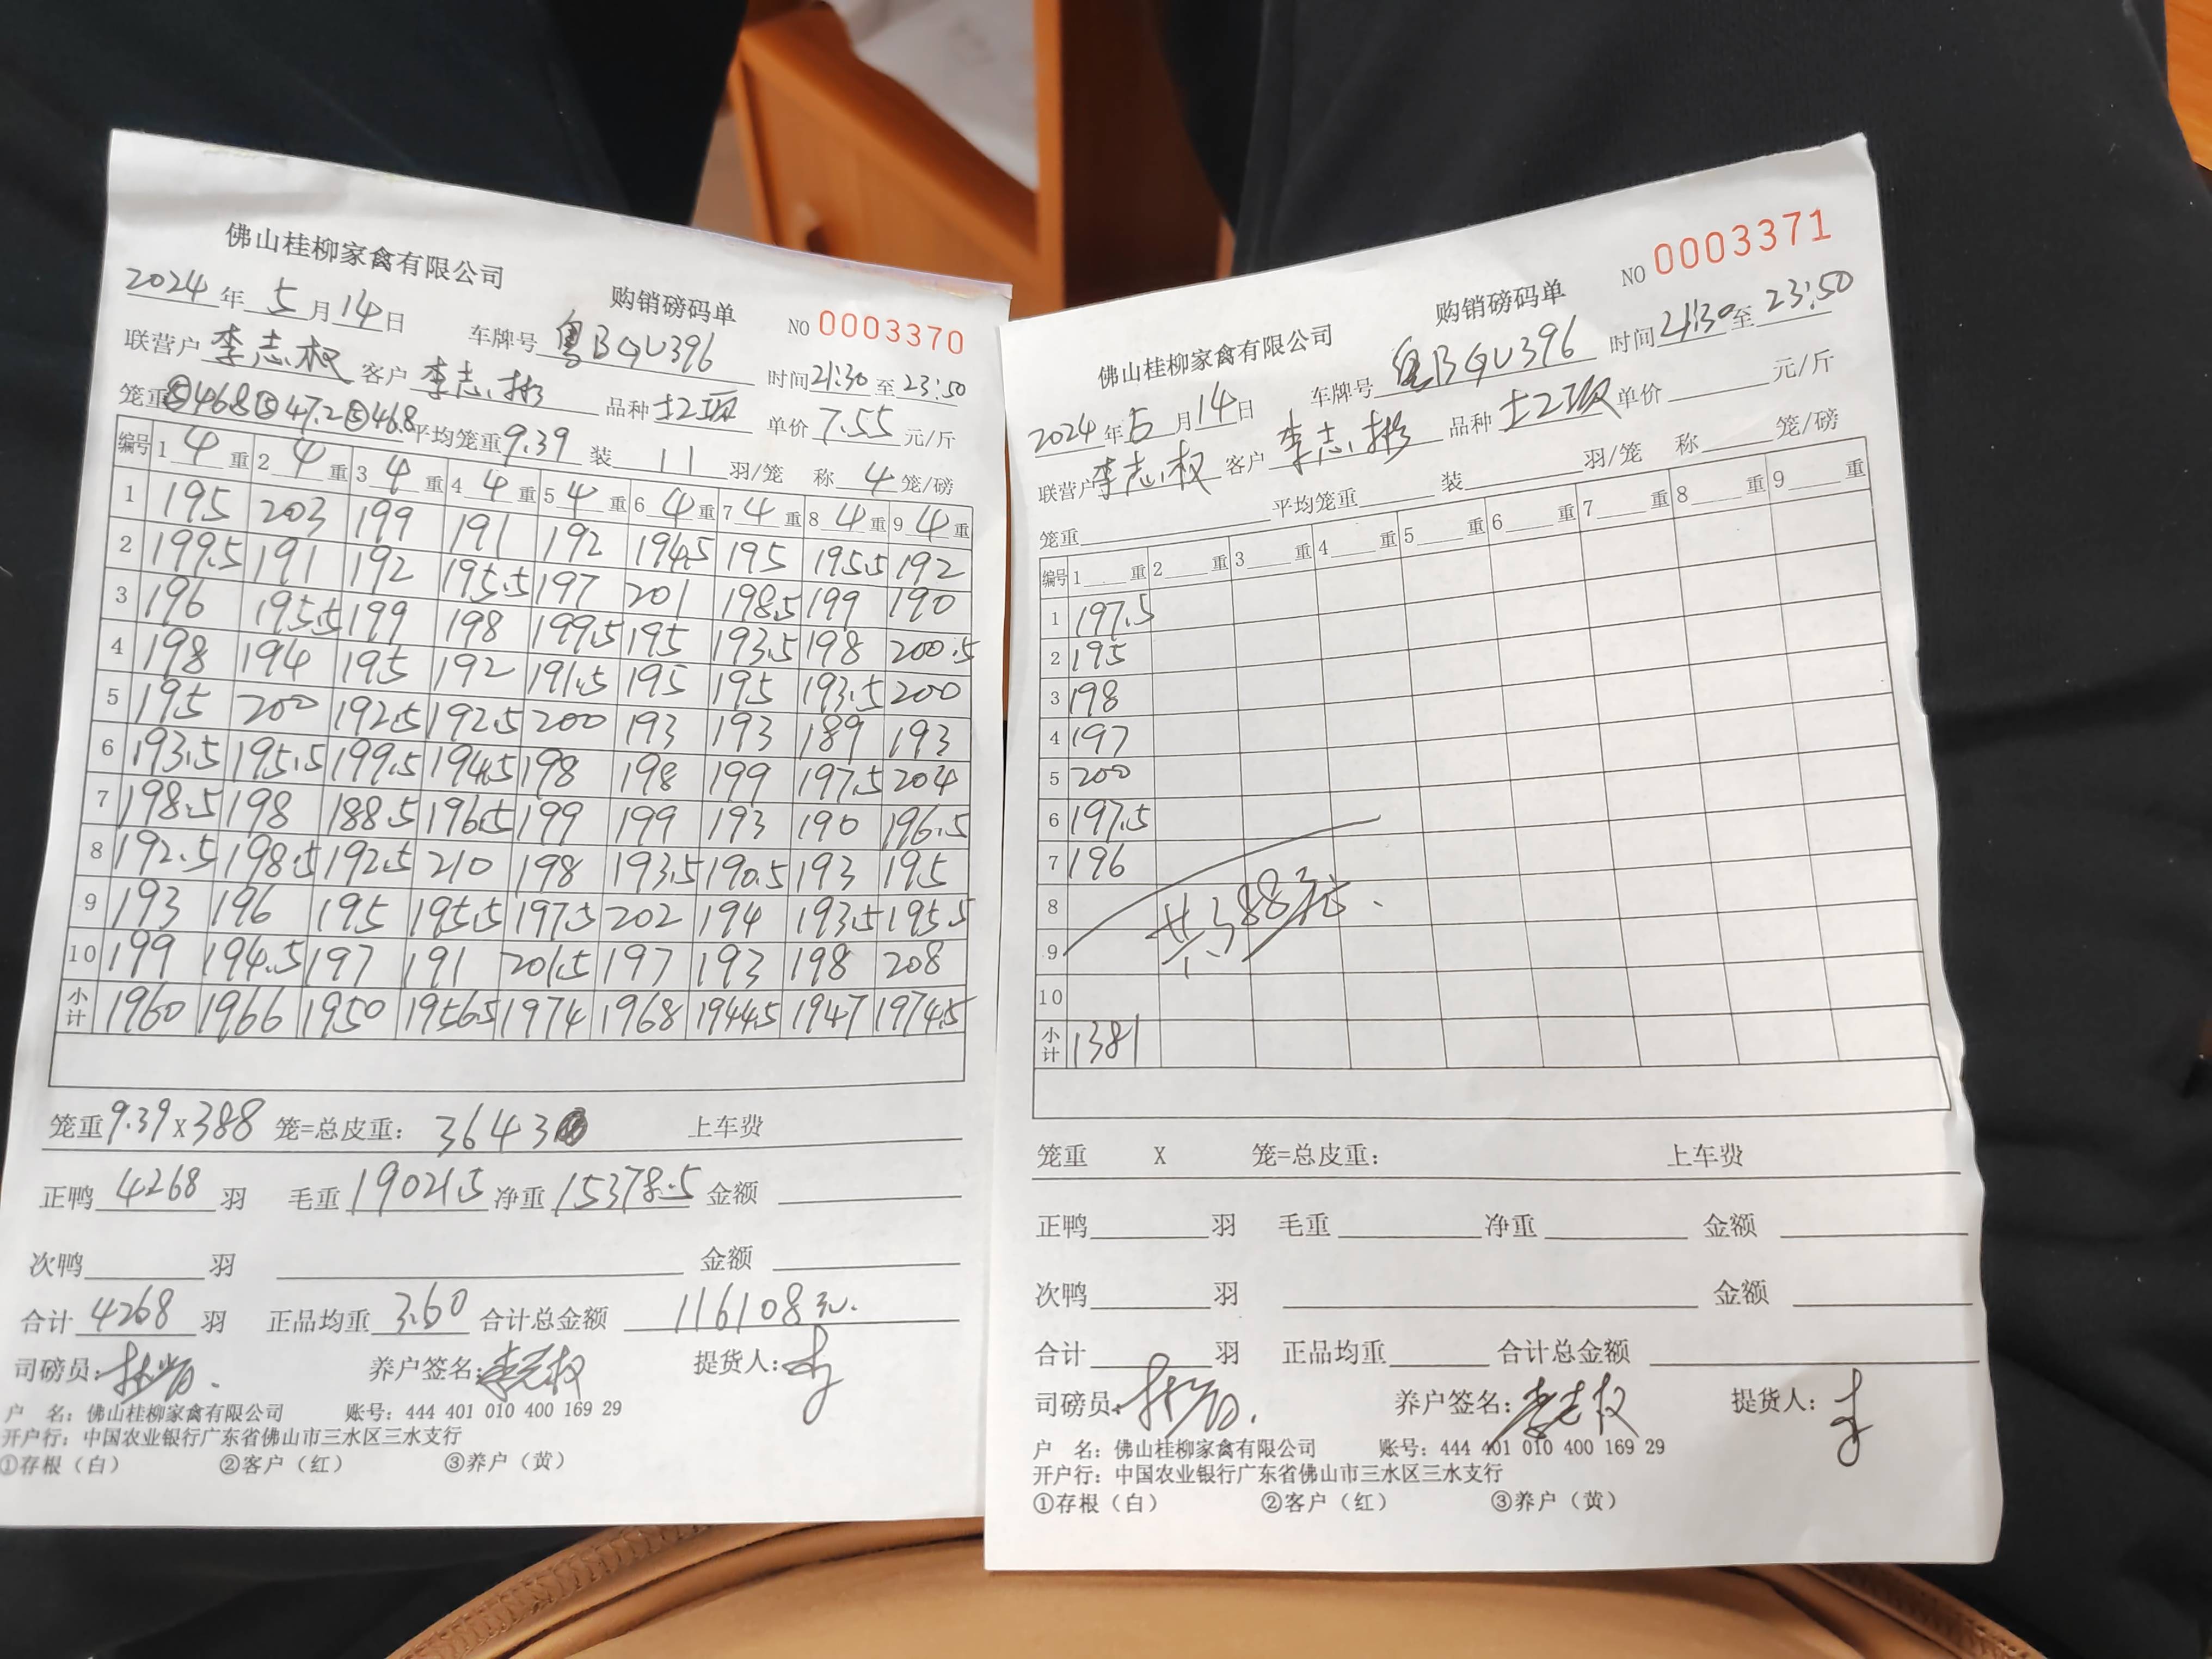 佛山桂柳家禽有限公司
购销磅码单 NO 0003370
2024年5月14日 车牌号 粤BGU396 时间21:30至23:50
联营户 李志权 客户 李志彬 品种 土2 单价 7.55 元/斤
笼重⑤46.8⑤47.2⑤46.8 平均笼重9.39 装 11 羽/笼 称 4 笼/磅
编号 1 4 重 2 4 重 3 4 重 4 4 重 5 4 重 6 4 重 7 4 重 8 4 重 9 4 重
1 195 203 199 191 192 194.5 195 195.5 192
2 199.5 191 192 195.5 197 201 198.5 199 190
3 196 195.5 199 198 199.5 195 193.5 198 200.5
4 198 194 195 192 191.5 195 195 193.5 200
5 195 200 192.5 192.5 200 193 193 189 193
6 193.5 195.5 199.5 194.5 198 198 199 197.5 204
7 198.5 198 188.5 196.5 199 199 193 190 196.5
8 192.5 198.5 192.5 210 198 193.5 190.5 193 195
9 193 196 195 195.5 197.5 202 194 193.5 195.5
10 199 194.5 197 191 201.5 197 193 198 208
小计 1960 1966 1950 1956.5 1974 1968 1944.5 1947 1974.5
笼重9.39X388 笼=总皮重: 3643 上车费
正鸭 4268 羽 毛重 19021.5 净重 15378.5 金额
次鸭 羽 金额
合计 4268 羽 正品均重 3.60 合计总金额 116108元.
司磅员: 养户签名:李志权 提货人:
户 名: 佛山桂柳家禽有限公司 账号: 444 401 010 400 169 29
开户行: 中国农业银行广东省佛山市三水区三水支行
①存根(白) ②客户(红) ③养户(黄)
佛山桂柳家禽有限公司
购销磅码单 NO 0003371
2024年5月14日 车牌号 粤BGU396 时间21:30至23:50
联营户李志权 客户 李志彬 品种 土2 单价 元/斤
笼重 平均笼重 装 羽/笼 称 笼/磅
编号 1 重 2 重 3 重 4 重 5 重 6 重 7 重 8 重 9 重
1 197.5
2 195
3 198
4 197
5 200
6 197.5
7 196
8
共388笼.
9
10
小计 1381
笼重 X 笼=总皮重: 上车费
正鸭 羽 毛重 净重 金额
次鸭 羽 金额
合计 羽 正品均重 合计总金额
司磅员: 养户签名:李志权 提货人:
户 名: 佛山桂柳家禽有限公司 账号: 444 401 010 400 169 29
开户行: 中国农业银行广东省佛山市三水区三水支行
①存根(白) ②客户(红) ③养户(黄)